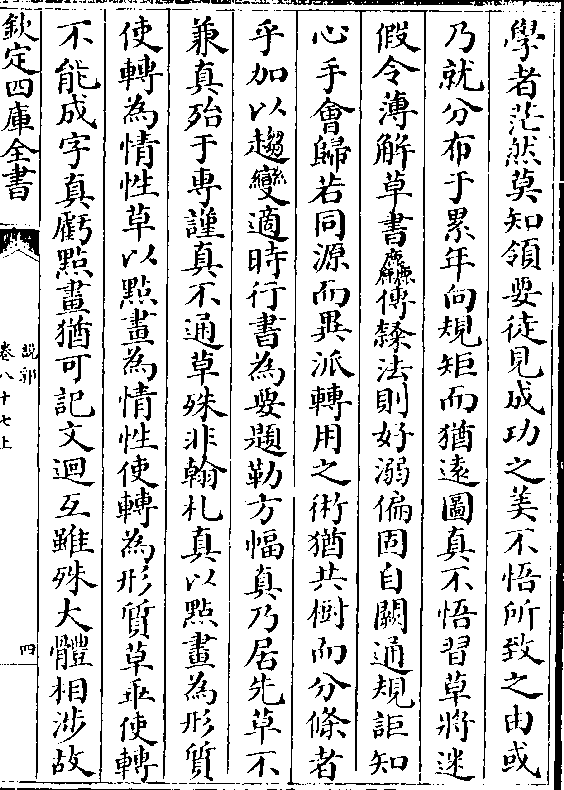 學者茫然莫知領要徒見成功之美不悟所致之由或
乃就分布于累年向規矩而猶遠圖真不悟習草將迷
假令薄解草書麄傳隸法則好溺偏固自闕通規詎知
心手會歸若同源而異派轉用之術猶共樹而分條者
乎加以趨變適時行書為要題勒方幅真乃居先草不
兼真殆于專謹真不通草殊非翰札真以點畫為形質
使轉為情性草以點畫為情性使轉為形質草乖使轉
不能成字真虧點畫猶可記文迴互雖殊大體相涉故
欽定四庫全書
說郛
卷八十七上
四